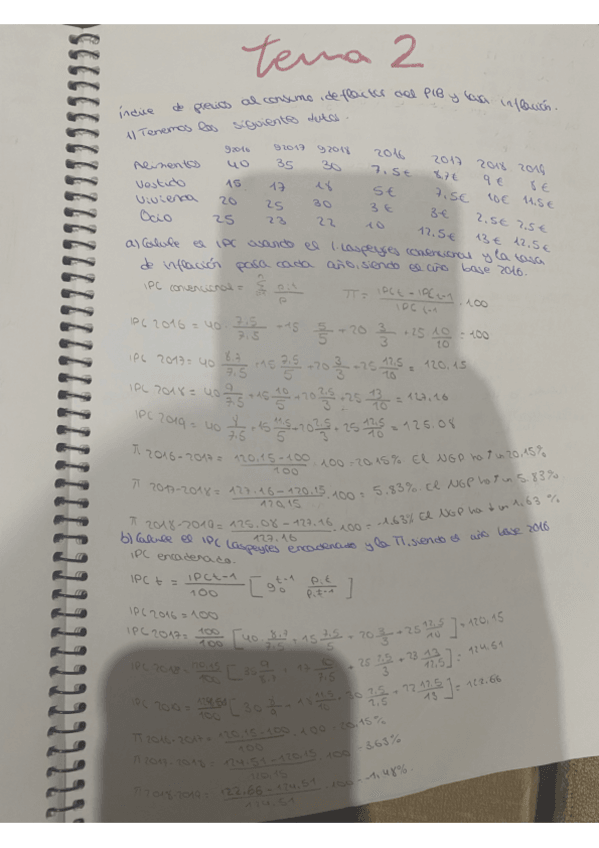 tema 2
índice de precios al consumo, deflactor del PIB y tasa inflación.
1) Tenemos los siguientes datos.
g2016 g2017 g2018 2016 2017 2018 2019
Alimentos 40 35 30 7,5€ 8,7€ 9€ 8€
Vestido 15 17 18 5€ 7,5€ 10€ 11.5€
Vivienda 20 25 30 3€ 3€ 2,5€ 2,5€
Ocio 25 23 22 10 12,5€ 13€ 12,5€
a) Calcule el IPC usando el I. Laspeyres convencional y la tasa
de inflación para cada año, siendo el año base 2016.
IPC convencional = π = IPCt - IPCt-1 / IPCt-1 · 100
IPC 2016 = 40 · 7.5/7.5 + 15 5/5 + 20 3/3 + 25 10/10 = 100
IPC 2017 = 40 8.7/7.5 + 15 7.5/5 + 20 3/3 + 25 12.5/10 = 120,15
IPC 2018 = 40 9/7.5 + 15 10/5 + 20 2.5/3 + 25 13/10 = 127.16
IPC 2019 = 40 8/7.5 + 15 11.5/5 + 20 2.5/3 + 25 12.5/10 = 125.08
π 2016-2017 = 120.15-100/100 · 100 = 20.15% El NGP ha ↑ un 20,15%
π 2017-2018 = 127.16-120.15/120.15 · 100 = 5.83% El NGP ha ↑ un 5.83%
π 2018-2019 = 125.08-127.16/127.16 · 100 = -1.63% El NGP ha ↓ un 1,63 %
b) Calcule el IPC Laspeyres encadenado y la π, siendo el año base 2016
IPC encadenado.
IPC t = IPCt-1/100 [ g t-1 p.t/p.t-1 ]
IPC 2016 = 100
IPC 2017 = 100/100 [40 · 8.7/7.5 + 15 7.5/5 + 20 3/3 + 25 12.5/10] = 120,15
IPC 2018 = 120,15/100 [35 9/8.7 + 17 10/7.5 + 25 2.5/3 + 23 13/12.5] = 124.51
IPC 2019 = 124.51/100 [30 8/9 + 18 11.5/10 + 30 2.5/2.5 + 22 12.5/13] = 122.66
π 2016-2017 = 120.15-100/100 · 100 = 20.15%
π 2017-2018 = 124.51-120.15/120.15 · 100 = 3.63%
π 2018-2019 = 122.66-124.51/124.51 · 100 = -1.48%